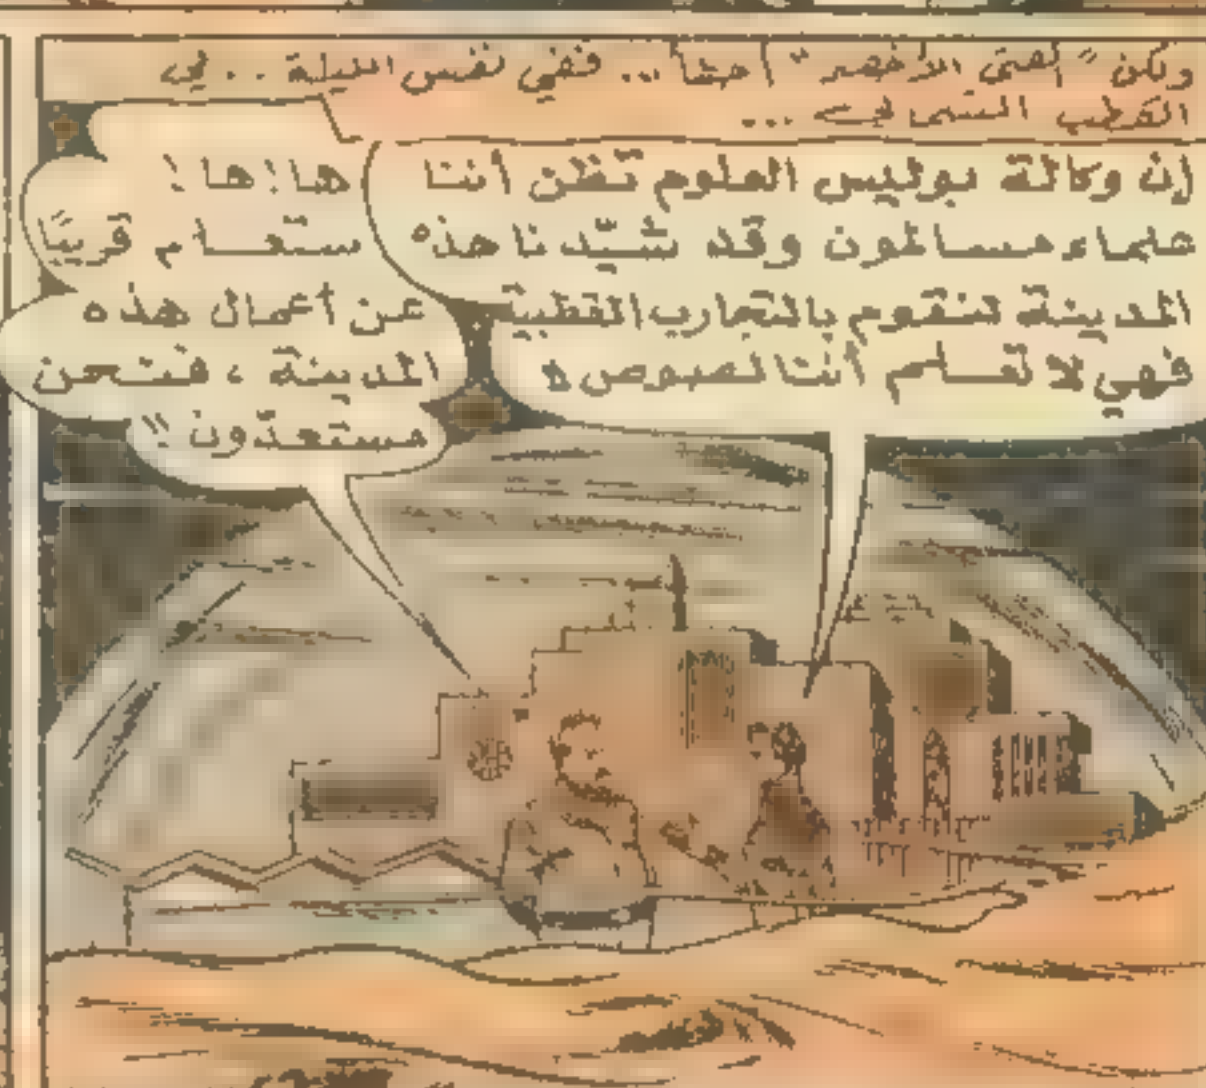 ولكن " الفتى الأخضر " أخطأ... ففي نفس الليلة .. في
القطب الشمالي ...
إن وكالة بوليس العلوم تظن أننا
علماء مسالمون وقد شيّدنا هذه
المدينة لنقوم بالتجارب القطبية
فهي لا تعلم أننا لصوص ه
ها! ها!
ستعلم قريبًا
عن أعمال هذه
المدينة ، فنحن
مستعدّون !!